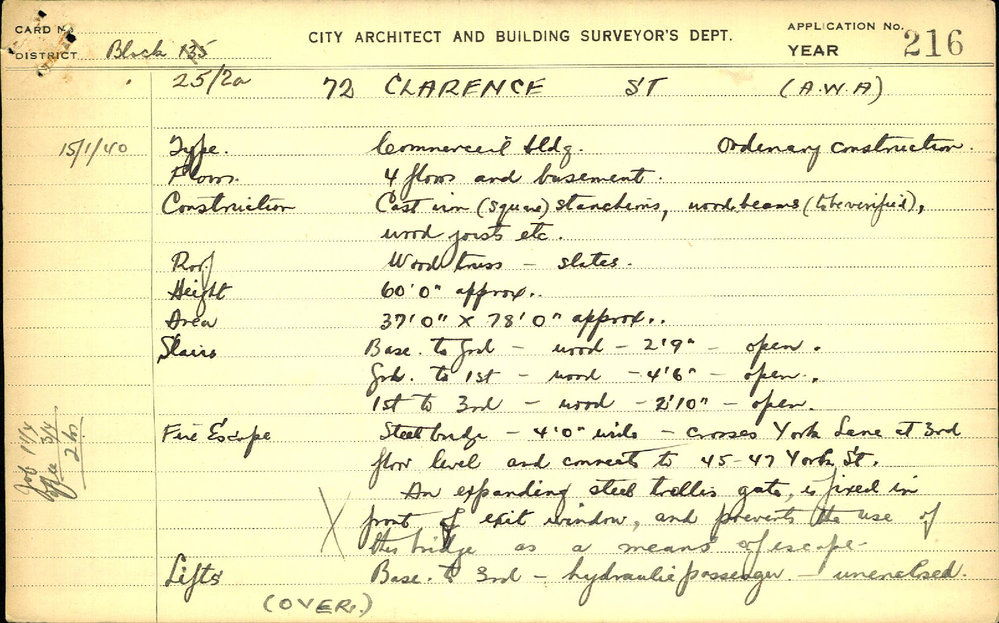 CARD No.
DISTRICT Block 135
CITY ARCHITECT AND BUILDING SURVEYOR'S DEPT.
APPLICATION No. 216
YEAR
25/2a 72 CLARENCE ST (A.W.A)
15/1/40 Type. Commercial bldg. Ordinary construction.
Floors. 4 floors and basement.
Construction Cast iron (square) stanchions, wood beams (to be verified),
wood joists etc.
Roof Wood truss – slates.
Height 60'0" approx..
Area 37'0" x 78'0" approx..
Stairs Base. to Grd – wood – 2'9" – open.
Grd. to 1st – wood – 4'6" – open.
1st to 3rd – wood – 2'10" – open.
Fire Escape Steel bridge – 4'0" wide – crosses York Lane at 3rd
floor level and connects to 45-47 York St.
An expanding steel trellis gate, is fixed in
X front of exit window, and prevents the use of
this bridge as a means of escape.
Lifts Base. to 3rd – hydraulic passenger – unenclosed.
(OVER.)
Job 1 1/4
Office 3/4
2 hrs.